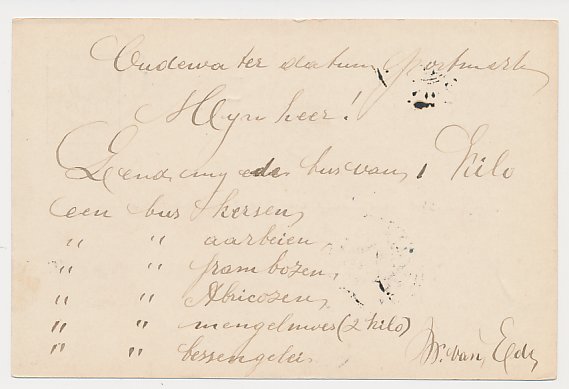 Oudewater datum Postmerk
Mijnheer!
Zend mij ede bus van 1 kilo
een bus kersen,
" " aarbeien,
" " frambozen,
" " Abricozen,
" " mengelmoes (2 kilo)
" " bessengelei.
W. van Ede